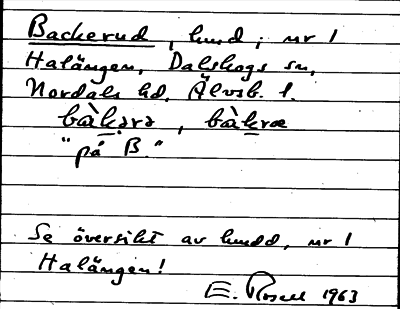 Backerud, hmd, nr 1
Halängen, Dalskogs sn,
Nordals hd, Älvsb. l.
bàkərə, bàkræ
"på B."
Se översikt av hmdd, nr 1
Halängen!
E. Rosell 1963